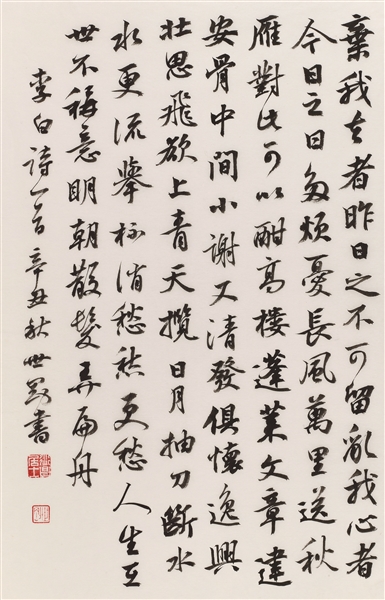 棄我去者昨日之不可留亂我心者
今日之日多煩憂長風萬里送秋
雁對此可以酣高樓蓬萊文章建
安骨中間小謝又清發俱懷逸興
壯思飛欲上青天攬日月抽刀斷水
水更流舉杯消愁愁更愁人生在
世不稱意明朝散髮弄扁舟
李白詩一首辛丑秋世書